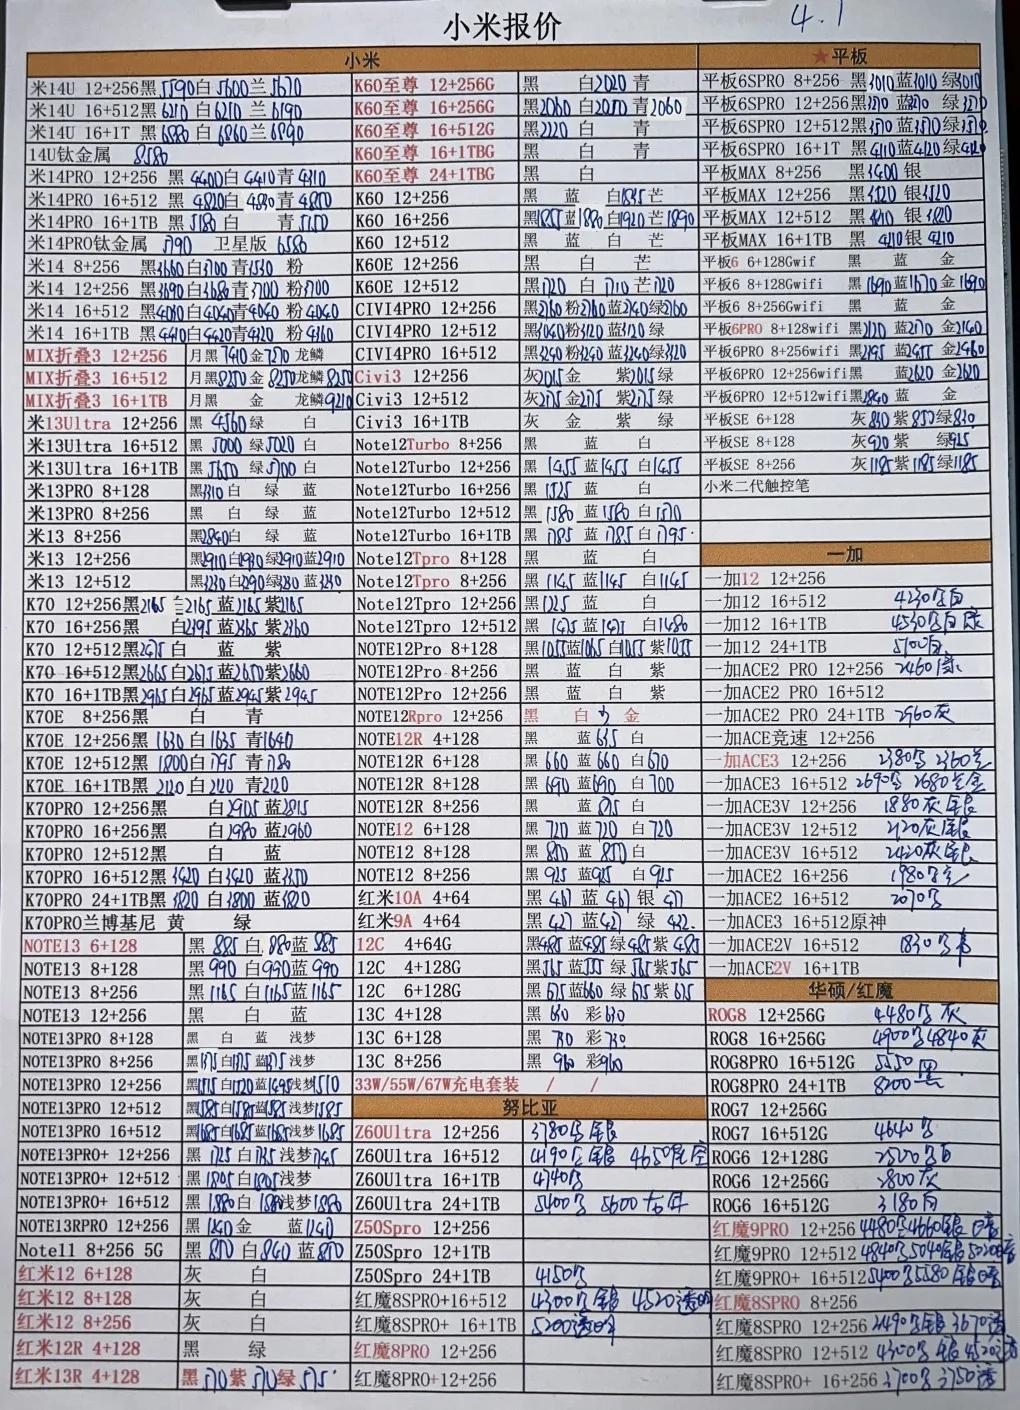 小米报价
4.1
小米
米14U 12+256黑5590白5600兰5670
米14U 16+512黑6210白6210兰6190
米14U 16+1T 黑6880白6860兰6890
14U钛金属 8580
米14PRO 12+256 黑4400白4410青4310
米14PRO 16+512 黑4820白4830青4850
米14PRO 16+1TB黑5180白 青5150
米14PRO钛金属 5790 卫星版 6580
米14 8+256 黑3660白3700青3530 粉
米14 12+256 黑3690白3680青3700 粉3700
米14 16+512 黑4080白4040青4040 粉4040
米14 16+1TB 黑4410白4420青4320 粉4360
MIX折叠3 12+256 月黑7410金7270 龙鳞
MIX折叠3 16+512 月黑8250 金 8250龙鳞8250
MIX折叠3 16+1TB 月黑 金 龙鳞9210
米13Ultra 12+256 黑 4560绿 白
米13Ultra 16+512 黑 5000 绿5020 白
米13Ultra 16+1TB 黑 5650 绿5700 白
米13PRO 8+128 黑3310白 绿 蓝
米13PRO 8+256 黑 白 绿 蓝
米13 8+256 黑2840白 绿 蓝
米13 12+256 黑2910白2930绿2910蓝2910
米13 12+512 黑3230白3290绿3230蓝3230
K70 12+256黑2165 兰2165 蓝2165紫2165
K70 16+256黑 白2395蓝2365紫2360
K70 12+512黑2475白 蓝 紫
K70 16+512黑2665白2675蓝2650紫2660
K70 16+1TB黑2965白2965蓝2945紫2945
K70E 8+256黑 白 青
K70E 12+256黑 1630白1635 青1640
K70E 12+512黑 1800白1795 青1780
K70E 16+1TB黑 2120白2120 青2120
K70PRO 12+256黑 白2905蓝2815
K70PRO 16+256黑 白2980 蓝2960
K70PRO 12+512黑 白 蓝
K70PRO 16+512黑3420 白3420 蓝3350
K70PRO 24+1TB黑3820 白3800 蓝3820
K70PRO兰博基尼 黄 绿
NOTE13 6+128 黑 885 白 880蓝 885
NOTE13 8+128 黑 990 白990蓝 990
NOTE13 8+256 黑 1165 白1165蓝1165
NOTE13 12+256 黑 白 蓝
NOTE13PRO 8+128 黑 白 蓝 浅梦
NOTE13PRO 8+256 黑1375白1375蓝1375浅梦
NOTE13PRO 12+256 黑1515白1520蓝1495浅梦1510
NOTE13PRO 12+512 黑1585白1585蓝1585浅梦1585
NOTE13PRO 16+512 黑1685白1685蓝1685浅梦1685
NOTE13PRO+ 12+256 黑 1725 白1735 浅梦1745
NOTE13PRO+ 12+512 黑 1805白1805 浅梦
NOTE13PRO+ 16+512 黑 1880白1880浅梦1880
NOTE13RPRO 12+256 黑 1240金 蓝1240
Note11 8+256 5G 黑 850 白840 蓝 850
红米12 6+128 灰 白
红米12 8+128 灰 白
红米12 8+256 灰 白
红米12R 4+128 黑 绿
红米13R 4+128 黑570紫570绿575
K60至尊 12+256G 黑 白2020 青
K60至尊 16+256G 黑2060 白2050青2060
K60至尊 16+512G 黑2220 白 青
K60至尊 16+1TBG 黑 白 青
K60至尊 24+1TBG 黑 白
K60 12+256 黑 蓝 白1835芒
K60 16+256 黑1855蓝1880白1920芒1890
K60 12+512 黑 蓝 白 芒
K60E 8+256 黑 白 芒
K60E 12+512 黑1720 白1710 芒1720
CIVI4PRO 12+256 黑2760粉2760蓝2740绿2760
CIVI4PRO 12+512 黑3040粉3120蓝3120 绿
CIVI4PRO 16+512 黑3240粉3240 蓝3240绿3120
Civi3 12+256 灰2015金 紫2015绿
Civi3 12+512 灰2175金2175 紫2175绿
Civi3 16+1TB 灰 金 紫 绿
Note12Turbo 8+256 黑 蓝 白
Note12Turbo 12+256 黑 1455蓝1455 白1455
Note12Turbo 16+256 黑 1525 蓝 白
Note12Turbo 12+512 黑 1580 蓝1580 白1570
Note12Turbo 16+1TB 黑 1785 蓝1785 白1795
Note12Tpro 8+128 黑 蓝 白
Note12Tpro 8+256 黑 1145蓝1145 白1145
Note12Tpro 12+256 黑1225 蓝 白
Note12Tpro 12+512 黑 1475 蓝1475 白1480
NOTE12Pro 8+128 黑1055蓝1065 白1055 紫1055
NOTE12Pro 8+256 黑 蓝 白 紫
NOTE12Pro 12+256 黑 蓝 白 紫
NOTE12Rpro 12+256 黑 白 金
NOTE12R 4+128 黑 蓝635 白
NOTE12R 6+128 黑 660 蓝 660 白670
NOTE12R 8+128 黑 690 蓝690 白 700
NOTE12R 8+256 黑 蓝 875 白
NOTE12 6+128 黑 720 蓝720 白720
NOTE12 8+128 黑 850 蓝 850白
NOTE12 8+256 黑 925 蓝925 白925
红米10A 4+64 黑 461 蓝 461 银 477
红米9A 4+64 黑 427 蓝427 绿 432
12C 4+64G 黑485 蓝485绿485紫485
12C 4+128G 黑565 蓝555 绿565紫565
12C 6+128G 黑675 蓝660 绿675紫675
13C 4+128 黑 630 彩630
13C 6+128 黑 730 彩730
13C 8+256 黑 960 彩960
33W/55W/67W充电套装 / /
努比亚
Z60Ultra 12+256 3780黑银
Z60Ultra 16+512 4190黑银 4650星空
Z60Ultra 16+1TB 4740黑
Z60Ultra 24+1TB 5400黑
Z50Spro 12+256
Z50Spro 12+1TB
Z50Spro 24+1TB 4150黑
红魔8SPRO+16+512 4300黑银 4520透明
红魔8SPRO+ 16+1TB 5200透明
红魔8PRO 12+256
红魔8PRO+12+256
★平板
平板6SPRO 8+256 黑3010蓝3010绿3010
平板6SPRO 16+512黑 绿
平板6SPRO 12+512黑3510蓝3510绿3510
平板6SPRO 16+1T 黑4110蓝4120绿4120
平板MAX 8+256 黑3400 银
平板MAX 12+256 黑3520 银3520
平板MAX 12+512 黑 银3820
平板MAX 16+1TB 黑 4210银4210
平板6 6+128Gwif 黑 蓝 金
平板6 8+128Gwifi 黑 1690蓝1670 金1690
平板6 8+256Gwifi 黑 蓝 金
平板6PRO 8+128wifi 黑2120 蓝2170 金2140
平板6PRO 8+256wifi 黑2495 蓝2455 金2460
平板6PRO 12+256wifi黑 蓝2620 金2620
平板6PRO 12+512wifi黑2840蓝 金
平板SE 6+128 灰830紫850绿830
平板SE 8+128 灰920紫 绿925
平板SE 8+256 灰1185紫1185绿1185
小米二代触控笔
一加
一加12 12+256
一加12 16+512 4230黑白
一加12 16+1TB 4530黑白绿
一加12 24+1TB 5100白
一加ACE2 PRO 12+256 2460绿
一加ACE2 PRO 16+512
一加ACE2 PRO 24+1TB 2960灰
一加ACE竞速 12+256
一加ACE3 12+256 2380黑 2360兰
一加ACE3 16+512 2690黑 2680兰金
一加ACE3V 12+256 1880灰银
一加ACE3V 12+512 2120灰银
一加ACE3V 16+512 2420灰银
一加ACE2 16+256 1980兰
一加ACE2 16+512 2070黑
一加ACE3 16+512原神
一加ACE2V 16+512 1830黑
一加ACE2V 16+1TB
华硕/红魔
ROG8 12+256G 4480黑灰
ROG8 16+256G 4900黑4840灰
ROG8PRO 16+512G 5550黑
ROG8PRO 24+1TB 8200
ROG7 12+256G
ROG7 16+512G 4640黑
ROG6 12+128G 2500黑白
ROG6 12+256G 2800灰
ROG6 16+512G 3180白
红魔9PRO 12+256
红魔9PRO 12+512
红魔9PRO+ 16+512
红魔8SPRO 8+256
红魔8SPRO 12+256 3490黑银 3670透
红魔8SPRO 12+512 4300黑银 4520透
红魔8SPRO+ 16+256 3700黑3750透